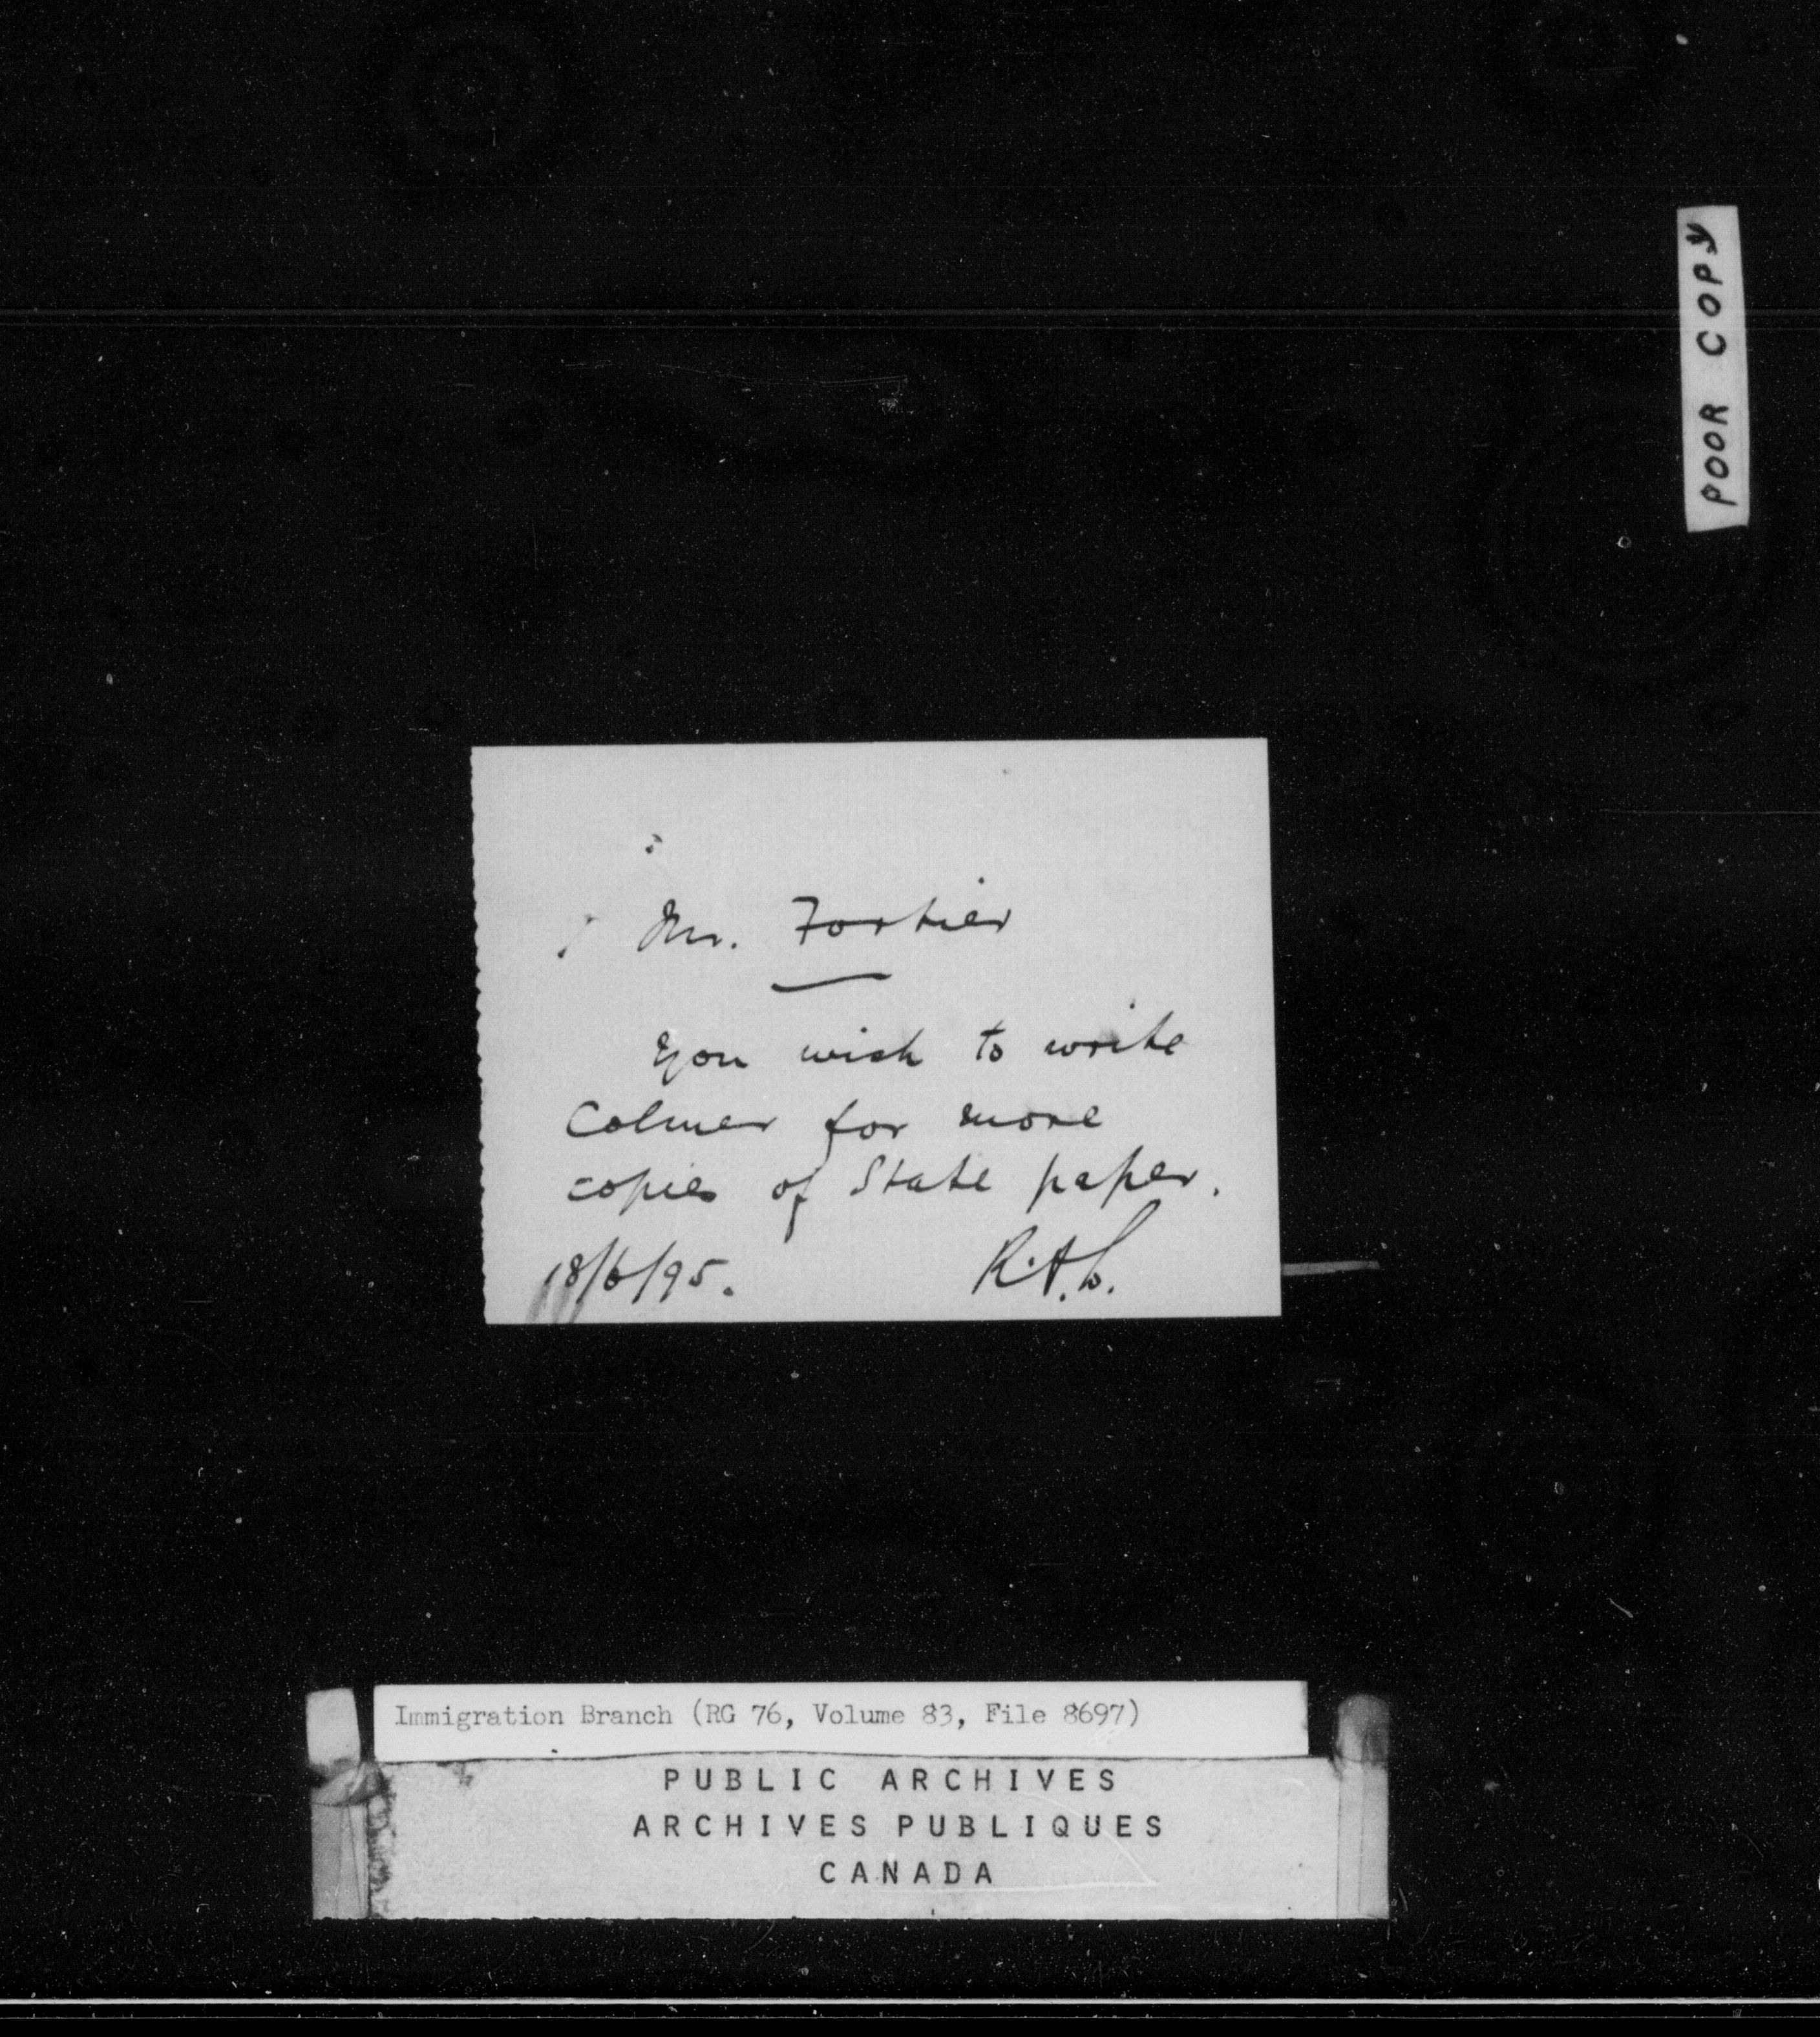 POOR COPY
Mr. Fortier
You wish to write
Colmer for more
copies of State paper.
18/6/95.
R.A.L.
Immigration Branch (RG 76, Volume 83, File 8697)
PUBLIC ARCHIVES
ARCHIVES PUBLIQUES
CANADA